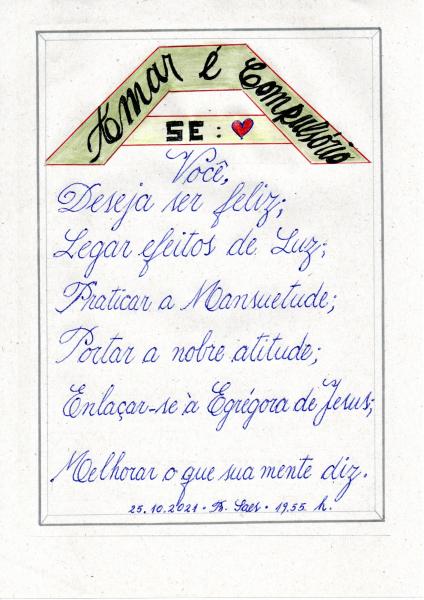 Amar é Compulsório
SE:
Você,
Deseja ser feliz;
Legar efeitos de Luz;
Praticar a Mansuetude;
Portar a nobre atitude;
Enlaçar-se à Egrégora de Jesus;
Melhorar o que sua mente diz.
25.10.2021 • B. Saes • 19.55 h.